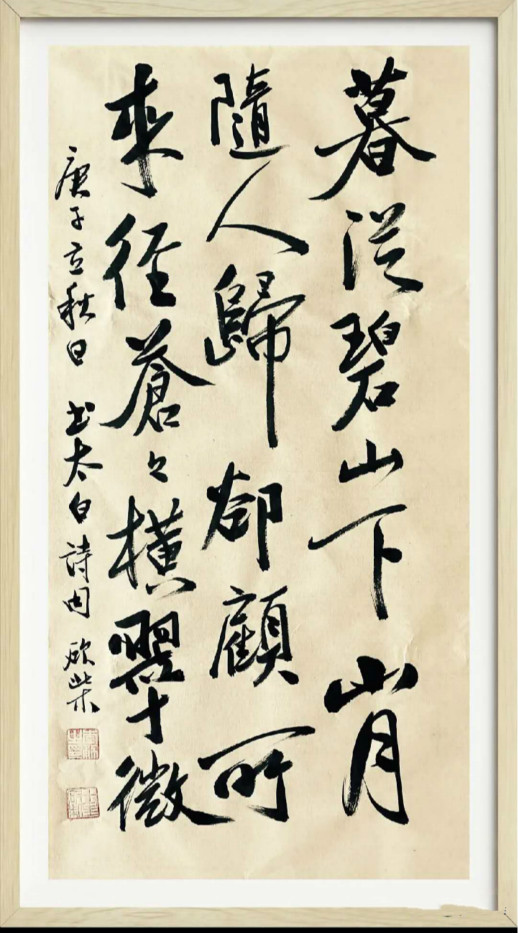 暮從碧山下山月
隨人歸卻顧所
來徑蒼々橫翠微
庚子立秋日 书太白詩句